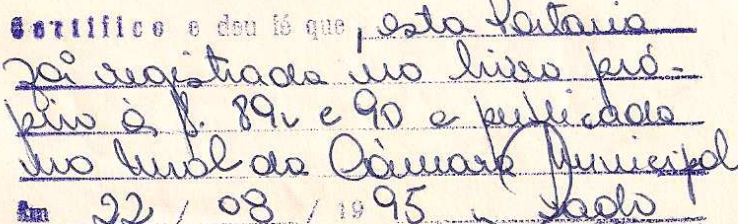 Certifico e dou fé que, esta Portaria
foi registrada no livro pró-
prio às f. 89v e 90 e publicada
no mural da Câmara Municipal
Em 22 / 08 / 1995